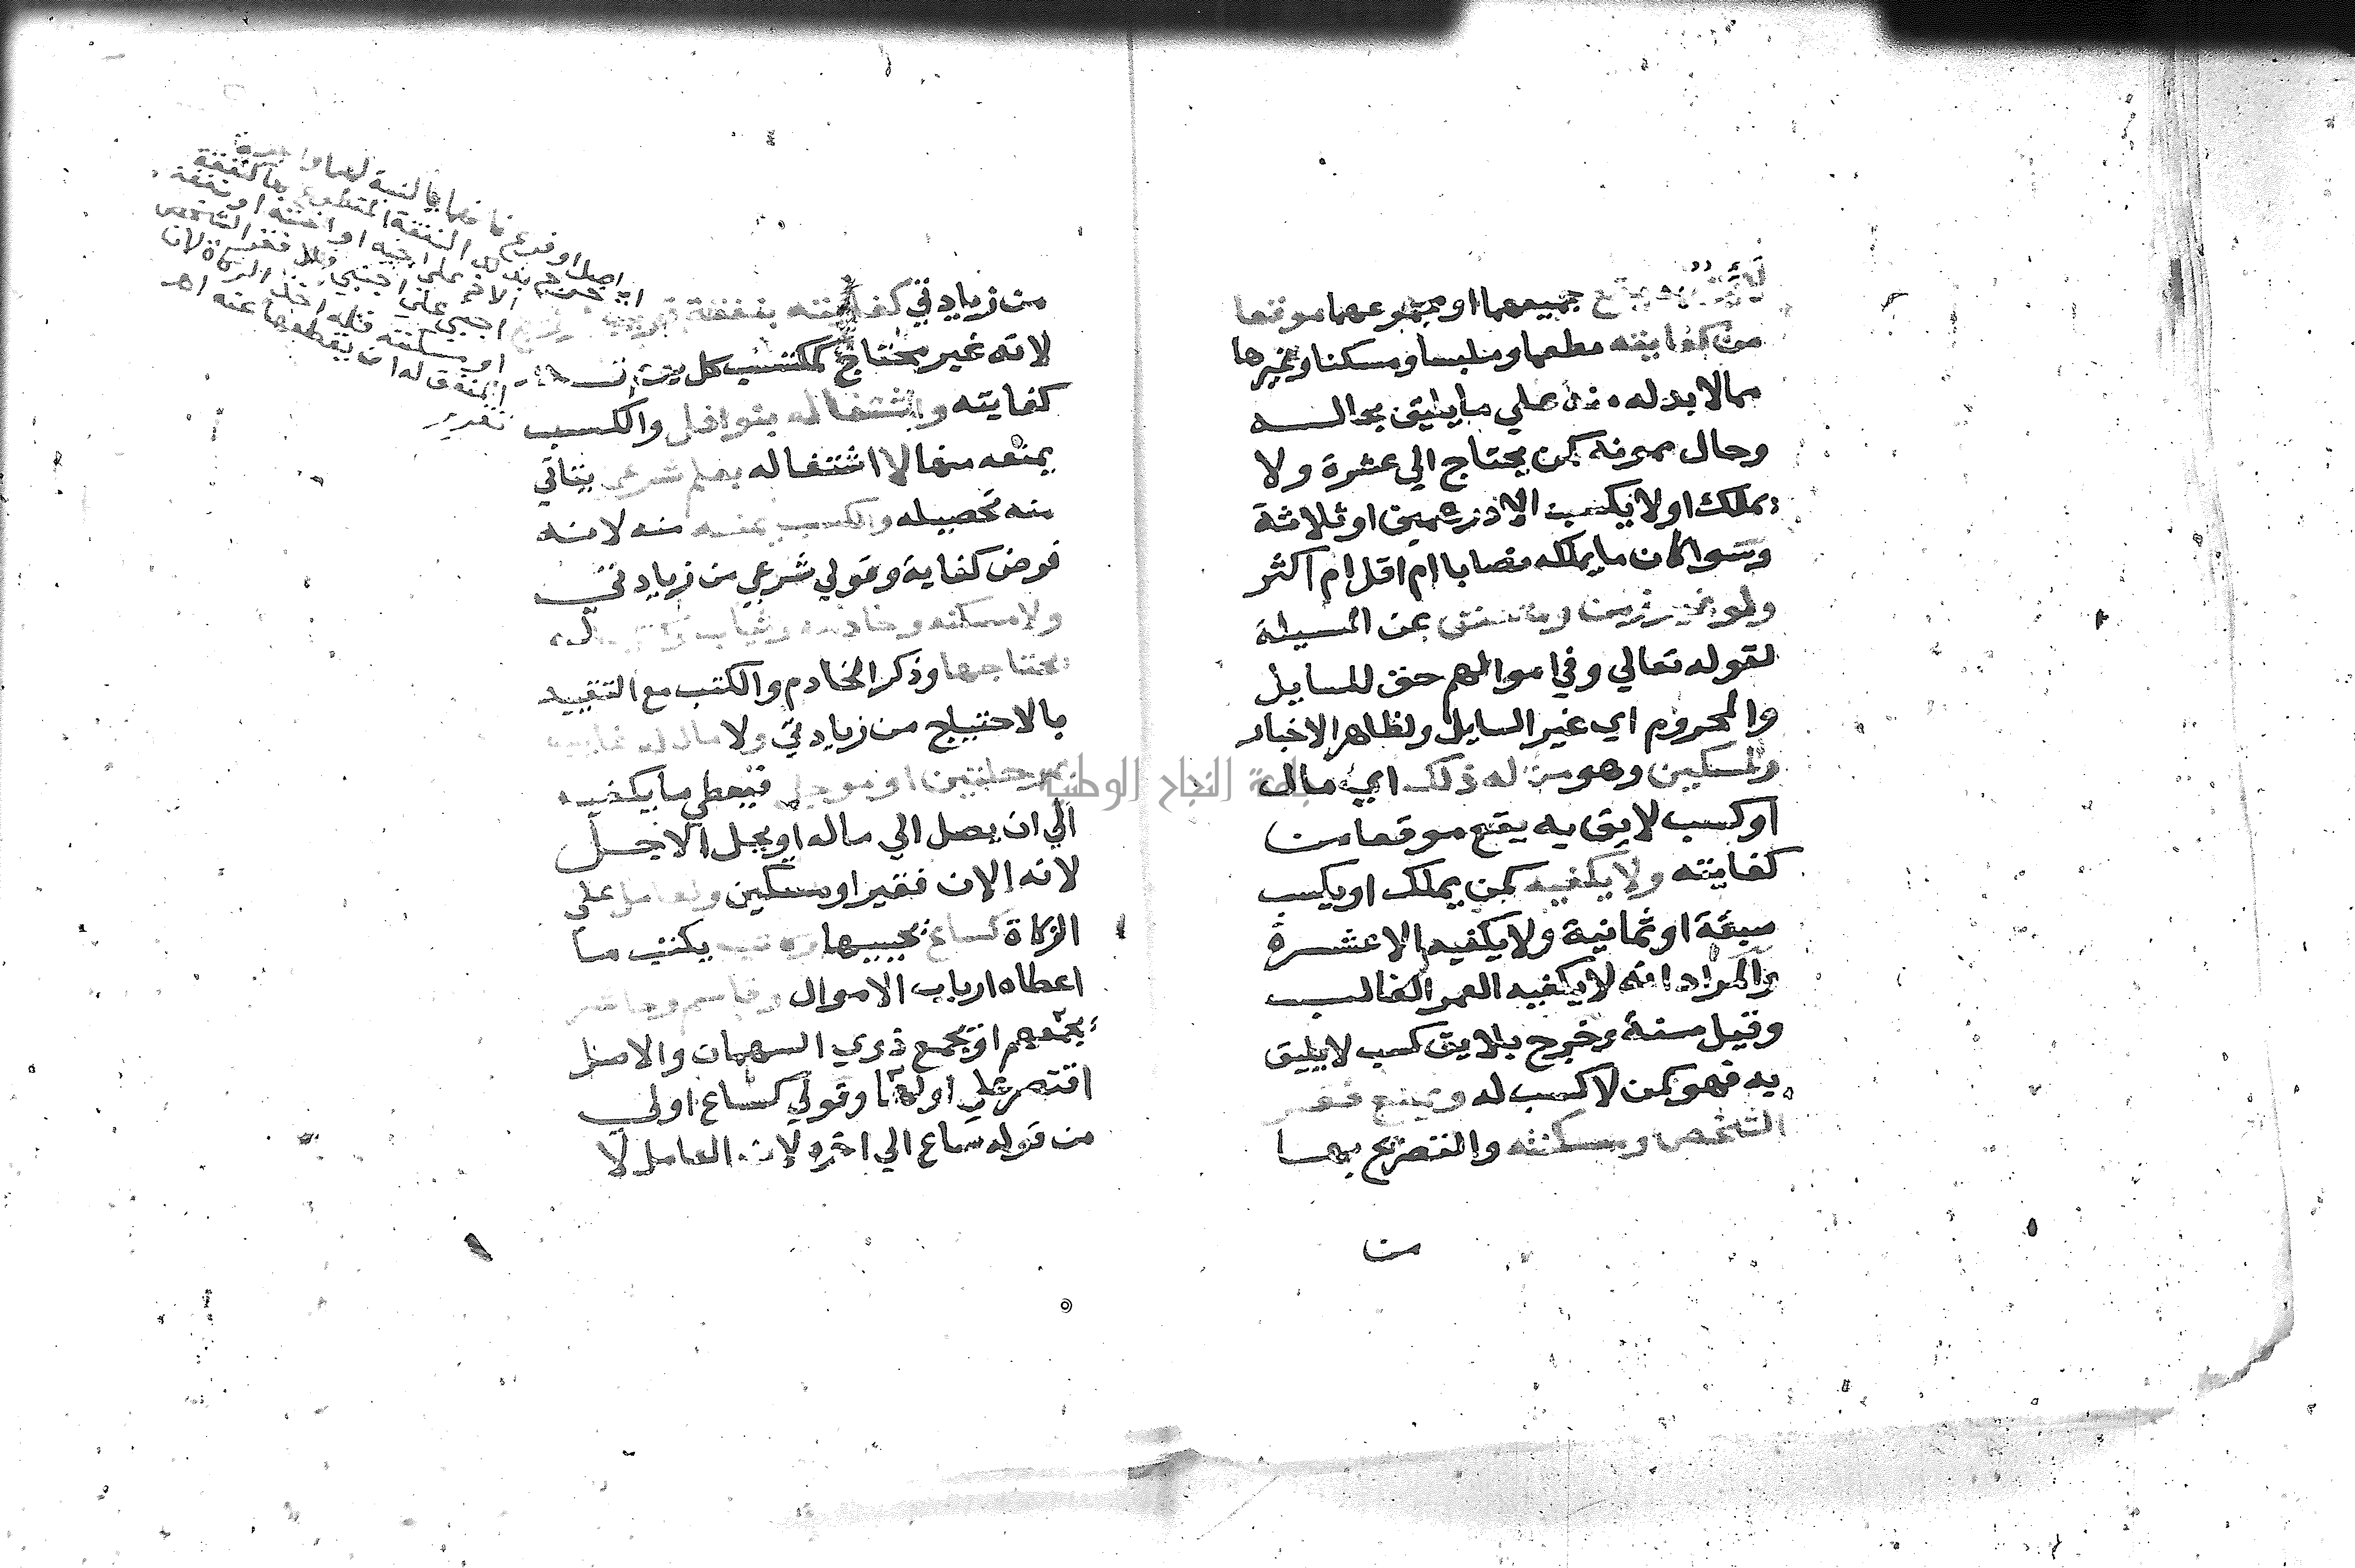 لائق به يقع جميعهما او مجموعهما موقعا
من كفايته مطعما وملبسا ومسكنا وغيرها
مما لا بد له منه علي ما يليق بحاله
وحال ممونه كمن يحتاج الي عشرة ولا
يملك او لا يكسب الا درهمين او ثلاثة
وسوا كان ما يملكه نصابا ام اقل ام اكثر
ولو غير زمن ومتعفف عن المسيلة
لقوله تعالي وفي اموالهم حق للسايل
والمحروم اي غير السايل ولظاهر الاخبار
ولمسكين وهو من له ذلك اي مال
او كسب لايق به يقع موقعا من
كفايته ولا يكفيه كمن يملك او يكسب
سبعة او ثمانية ولا يكفيه الا عشرة
والمراد انه لا يكفيه العمر الغالب
وقيل سنة وخرج بلايق كسب لا يليق
به فهو كمن لا كسب له ويمنع فقر
الشخص ومسكنته والتصريح بها
من
من زيادتي كفايته بنفقة قريب
لانه غير محتاج كمكتسب كل يوم قدر
كفايته واشتغاله بنوافل والكسب
يمنعه منها لا اشتغاله بعلم شرعي يتاتي
منه تحصيله والكسب يمنعه منه لانه
فرض كفاية وقولي شرعي من زيادتي
ولا مسكنه وخادمه وثياب وكتب له
يحتاجها وذكر الخادم والكتب مع التقييد
بالاحتياج من زيادتي ولا مال له غايب
بمرحلتين او موجل فيعطي ما يكفيه
الي ان يصل الي ماله او يحل الاجل
لانه الان فقير او مسكين ولعامل علي
الزكاة كساع يجبيها وكاتب يكتب ما
اعطاه ارباب الاموال وقاسم وحاشر
يجمعهم او يجمع ذوي السهمان والاصل
اقتصر علي اولهما وقولي كساع اولي
من قوله ساع الي اخره لان العامل لا
اصل او فرع
اجنبي علي اجنبي
او مسكنته فله اخذ الزكاة لان
المنفق له ان يقطعها عنه اهـ
تقرير
جامعة النجاح الوطنية